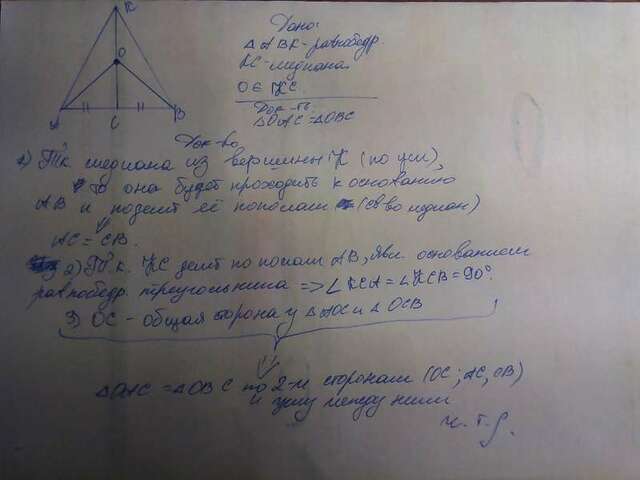 K
O
A
C
B
Дано:
△ABK - равнобедр.
KC - медиана
O ∈ KC.
Док-ть:
△OAC = △OBC
Док-во
1) Т.к. медиана из вершины K (по усл),
то она будет проходить к основанию
AB и поделит её пополам (св-во медиан)
AC = CB.
2) Т.к. KC делит по полам AB, явл. основанием
равнобедр. треугольника => ∠KCA = ∠KCB = 90°.
3) OC - общая сторона у △AOC и △OCB
△OAC = △OBC по 2-м сторонам (OC; AC, CB)
и углу между ними
ч.т.д.